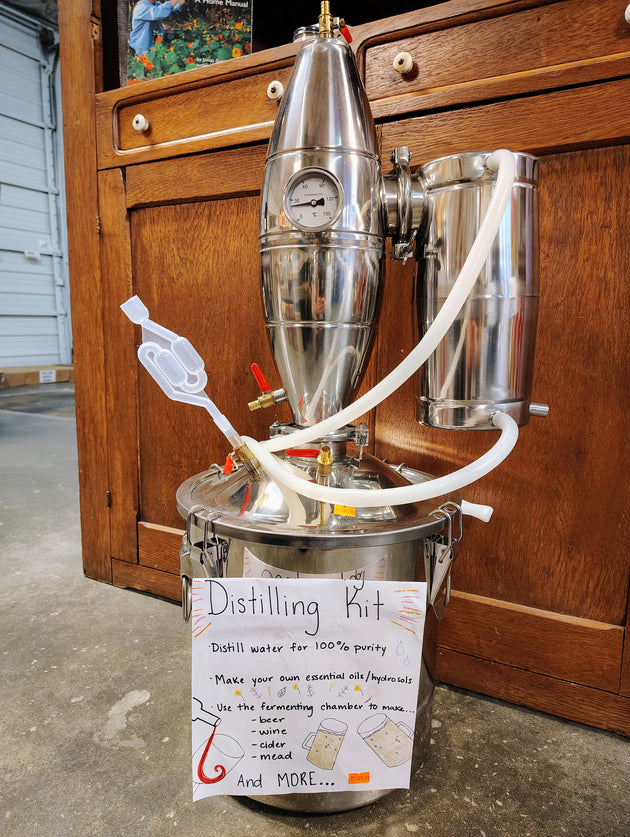 A Home Manual
THERMOMETER
30
60
90
120
0
150
°C
Distilling Kit
· Distill water for 100% purity
· Make your own essential oils/hydrosols
· Use the fermenting chamber to make...
- beer
- wine
- cider
- mead
And MORE...